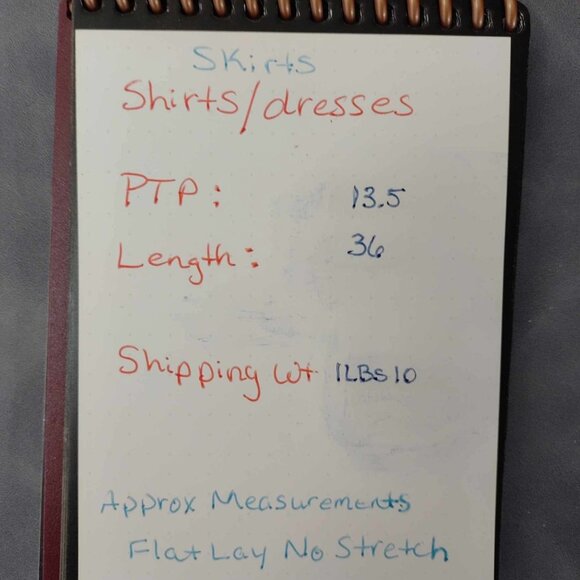 Skirts
Shirts/dresses
PTP: 13.5
Length: 36
Shipping Wt 1LBS 10
Approx Measurements
Flat Lay No Stretch